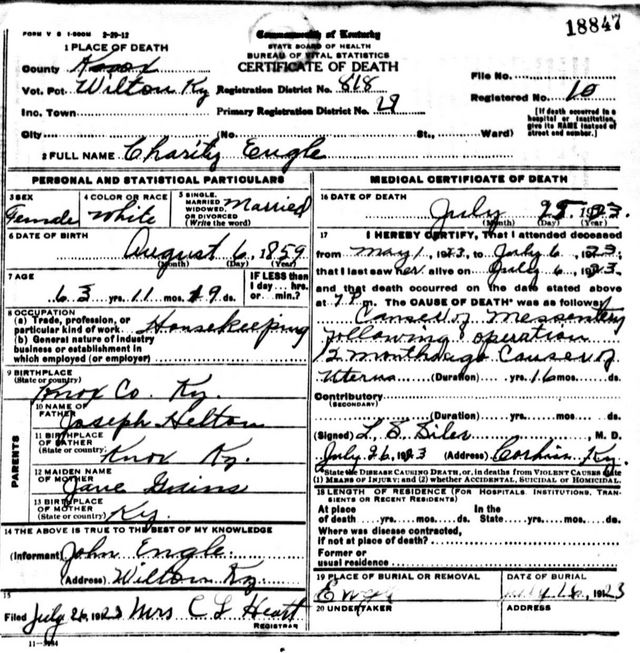 FORM V S 1-500M 2-29-12
18847
Commonwealth of Kentucky
STATE BOARD OF HEALTH
BUREAU OF VITAL STATISTICS
CERTIFICATE OF DEATH
1 PLACE OF DEATH
County Knox
Vot. Pct. Wilton Ky Registration District No. 818
Inc. Town Primary Registration District No.
City (No. St., Ward)
File No.
Registered No. 10
[If death occurred in a hospital or institution, give its NAME instead of street and number.]
2 FULL NAME Charity Engle
PERSONAL AND STATISTICAL PARTICULARS
3 SEX Female
4 COLOR OR RACE White
5 SINGLE, MARRIED WIDOWED OR DIVORCED (Write the word) Married
6 DATE OF BIRTH August 6, 1859
(Month) (Day) (Year)
7 AGE 63 yrs. 11 mos. 19 ds.
IF LESS than 1 day... hrs. or min.?
8 OCCUPATION
(a) Trade, profession, or particular kind of work Housekeeping
(b) General nature of industry business or establishment in which employed (or employer)
9 BIRTHPLACE
(State or country) Knox Co. Ky.
PARENTS
10 NAME OF FATHER Joseph Helton
11 BIRTHPLACE OF FATHER
(State or country) Knox Ky.
12 MAIDEN NAME OF MOTHER Jane
13 BIRTHPLACE OF MOTHER
(State or country) Ky.
14 THE ABOVE IS TRUE TO THE BEST OF MY KNOWLEDGE
(Informant) John Engle
(Address) Wilton Ky
15
Filed July 26, 1923 Mrs C L
REGISTRAR
11-3184
MEDICAL CERTIFICATE OF DEATH
16 DATE OF DEATH
July 25, 1923
(Month) (Day) (Year)
17 I HEREBY CERTIFY, That I attended deceased
from May 1, 1923, to July 6, 1923,
that I last saw her alive on July 6, 1923.
and that death occurred on the date stated above
at 7 P. m. The CAUSE OF DEATH* was as follows:
Cancer of Messentery
following operation
12 months ago Cancer of
Uterus (Duration) yrs. 16 mos. ds.
Contributory
(SECONDARY)
(Duration) yrs. mos. ds.
(Signed) L. S. Siler, M. D.
July 26, 1923 (Address) Corbin, Ky.
*State the DISEASE CAUSING DEATH, or, in deaths from VIOLENT CAUSES state (1) MEANS OF INJURY; and (2) whether ACCIDENTAL, SUICIDAL OR HOMICIDAL.
18 LENGTH OF RESIDENCE (FOR HOSPITALS, INSTITUTIONS, TRANSIENTS OR RECENT RESIDENTS)
At place of death yrs. mos. ds. In the State yrs. mos. ds.
Where was disease contracted,
if not at place of death?
Former or
usual residence
19 PLACE OF BURIAL OR REMOVAL
DATE OF BURIAL
1923
20 UNDERTAKER
ADDRESS